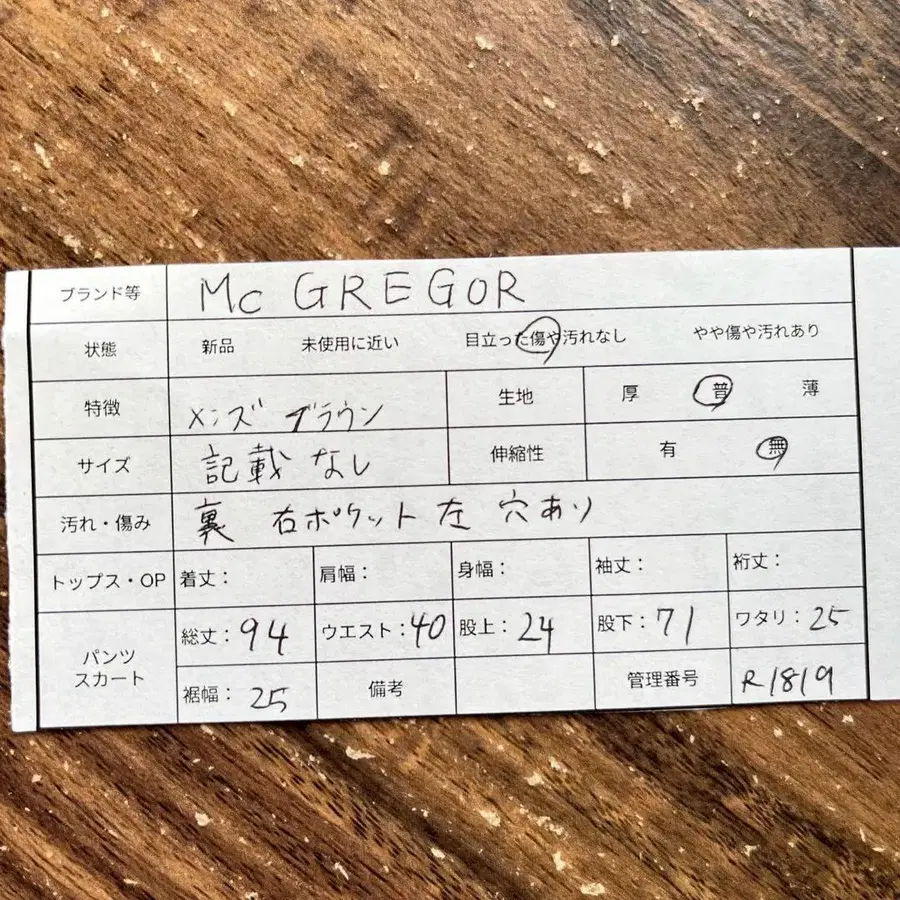 ブランド等 Mc GREGOR
状態 新品 未使用に近い 目立った傷や汚れなし やや傷や汚れあり
特徴 メンズ ブラウン 生地 厚 普 薄
サイズ 記載なし 伸縮性 有 無
汚れ・傷み 裏 右ポケット左 穴あり
トップス・OP 着丈: 肩幅: 身幅: 袖丈: 裄丈:
パンツ
スカート
総丈:94 ウエスト:40 股上:24 股下:71 ワタリ:25
裾幅:25 備考 管理番号 R1819